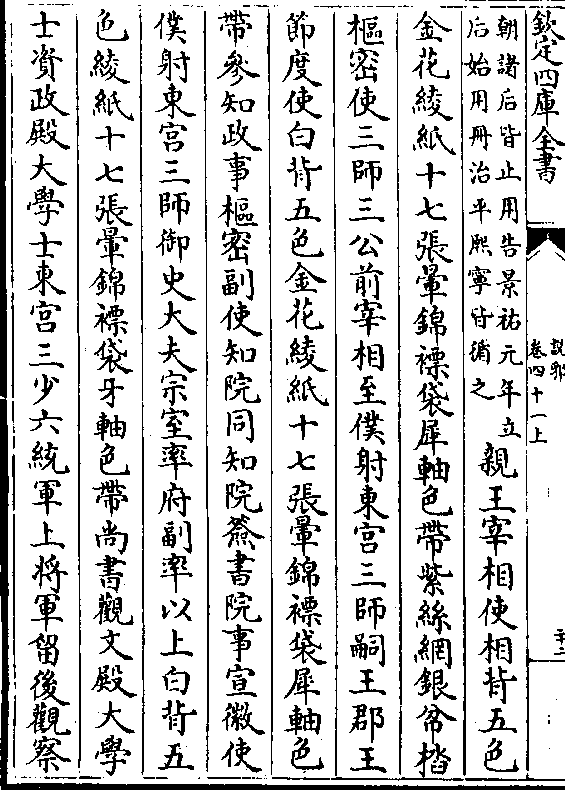 欽定四庫全書
說郛
卷四十一上
朝諸后皆止用告景祐元年立
后始用冊治平熙寧皆循之
親王宰相使相背五色
金花綾紙十七張暈錦褾袋犀軸色帶紫絲網銀帉錔
樞密使三師三公前宰相至僕射東宮三師嗣王郡王
節度使白背五色金花綾紙十七張暈錦褾袋犀軸色
帶參知政事樞密副使知院同知院簽書院事宣徽使
僕射東宮三師御史大夫宗室率府副率以上白背五
色綾紙十七張暈錦褾袋牙軸色帶尚書觀文殿大學
士資政殿大學士東宮三少六統軍上將軍留後觀察